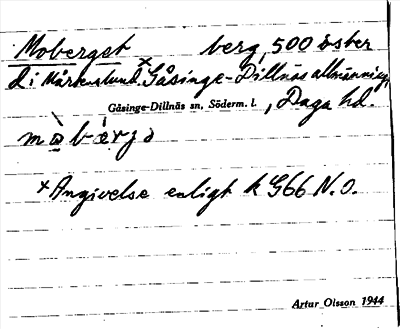 Moberget berg, 500 öster
d i Mårkslund. ˣGåsinge-Dillnäs allmänning,
Gåsinge-Dillnäs sn, Söderm. l., Daga hd.
mò̱bærjə
× Angivelse enligt k G66 N.O.
Artur Olsson 1944